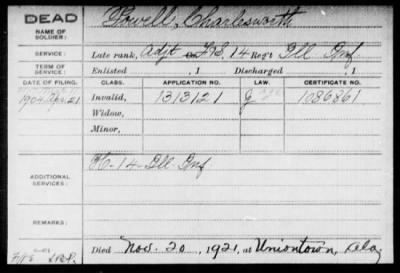 DEAD
NAME OF SOLDIER:
Powell, Charlesworth
SERVICE:
Late rank, Adjt F&S, 14 Reg't Ill Inf
TERM OF SERVICE:
Enlisted , 1 Discharged , 1
DATE OF FILING. CLASS. APPLICATION NO. LAW. CERTIFICATE NO.
1904 Apr. 21 Invalid, 1313121 G 1086861
Widow,
Minor,
ADDITIONAL SERVICES:
H-14-Ill Inf
REMARKS:
Died Nov. 20, 1921, at Uniontown,